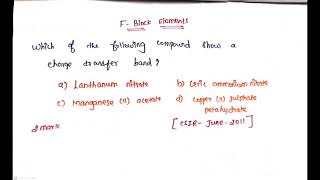 F-Block Elements
Which of the following compound show a
charge transfer band?
a) Lanthanum nitrate b) Ceric ammonium nitrate
c) Manganese (II) acetate d) copper (II) sulphate
pentahydrate
2 mark [CSIR- June-2011]